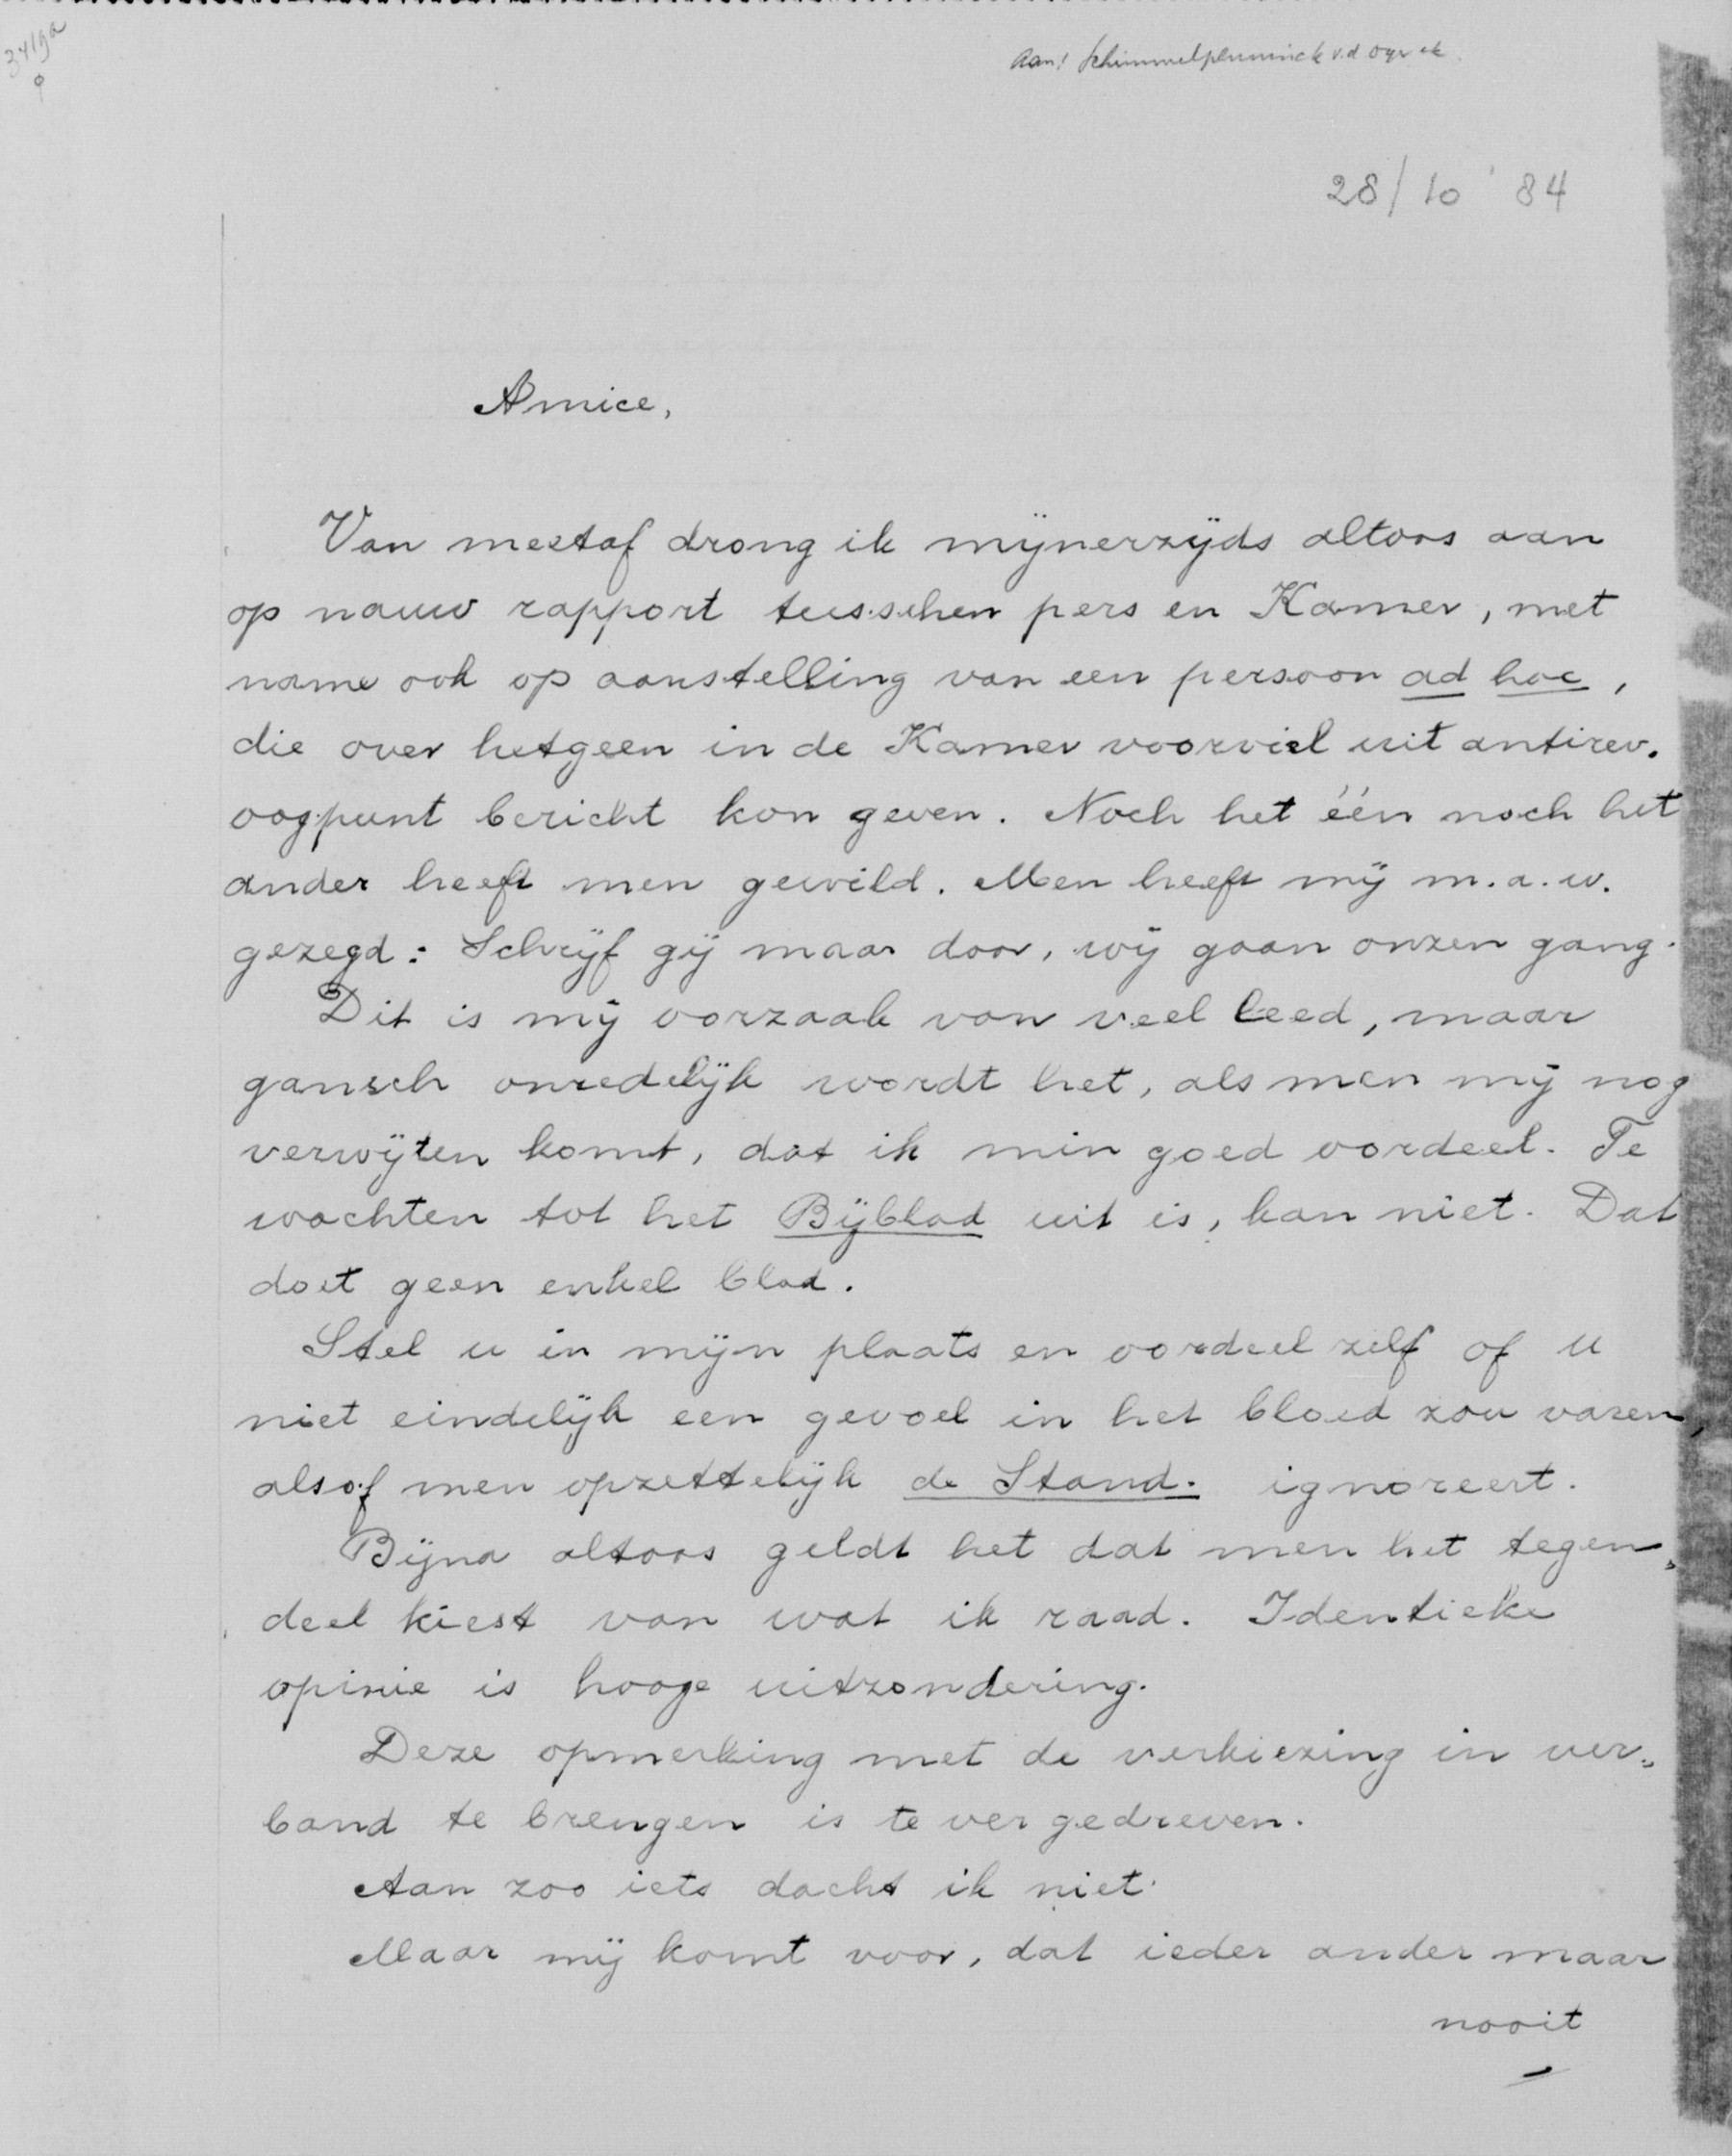 3419a
Aan: Schimmelpenninck v.d. Oye etc.
28/10 '84
Amice,
Van meetaf drong ik mijnerzijds altoos aan
op nauw rapport tusschen pers en Kamer, met
name ook op aanstelling van een persoon ad hoc,
die over hetgeen in de Kamer voorviel uit antirev.
oogpunt bericht kon geven. Noch het één noch het
ander heeft men gewild. Men heeft mij m.a.w.
gezegd: Schrijf gij maar door, wij gaan onzen gang.
Dit is mij oorzaak van veel leed, maar
gansch onredelijk wordt het, als men mij nog
verwijten komt, dat ik min goed oordeel. Te
wachten tot het Bijblad uit is, kan niet. Dat
doet geen enkel blad.
Stel u in mijn plaats en oordeel zelf of u
niet eindelijk een gevoel in het bloed zou varen,
alsof men opzettelijk de Stand. ignoreert.
Bijna altoos geldt het dat men het tegen„
deel kiest van wat ik raad. Identieke
opinie is hooge uitzondering.
Deze opmerking met de verkiezing in ver„
band te brengen is te ver gedreven.
Aan zoo iets dacht ik niet.
Maar mij komt voor, dat ieder ander maar
nooit